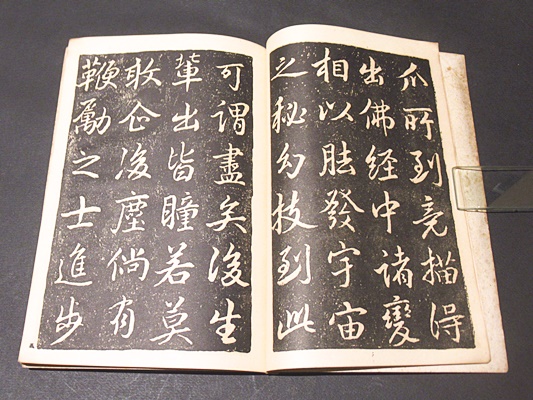 爪所到竟描得
出佛經中諸變
相以胠發宇宙
之秘幻技到此
可謂盡矣後生
輩出皆瞳若莫
敢企後塵倘有
鞭勵之士進步